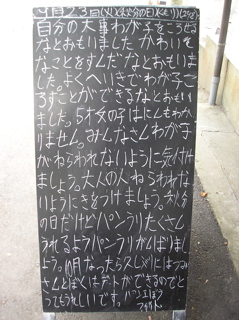 9月23日(火)(秋分の日)(くもり)
自分の大事わが子をころせる
なとおもいましたかわいそ
なことをすんだなとおもいま
した。よくへいきでわが子こ
ろすことができるなとおもい
ました。5才女の子はにしんもわか
りません。みんなさんわが子
がねらわれないように気付けま
しょう。大人の人ねらわれな
いようにきをつけましょう。秋分
の日だけどパンうりたくさん
うれるようパンうりがんばりまし
ょう。10月なったら久し〆にはつみ
さんとぼくはデートができるのでと
ってもうれしいです。パン工ぼう